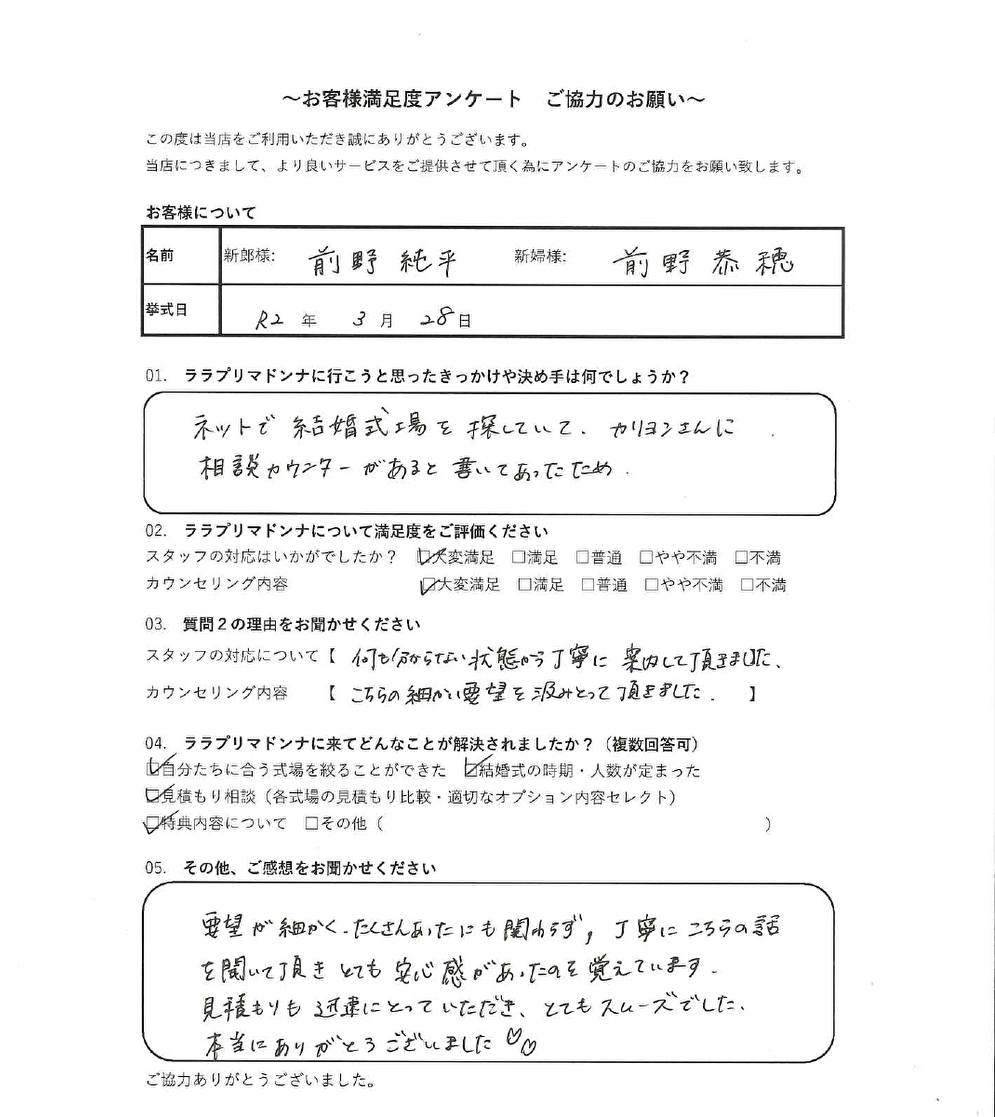 ～お客様満足度アンケート　ご協力のお願い～
この度は当店をご利用いただき誠にありがとうございます。
当店につきまして、より良いサービスをご提供させて頂く為にアンケートのご協力をお願い致します。
お客様について
名前 新郎様: 前野 純平 新婦様: 前野 恭穂
挙式日 R2 年 3 月 28日
01. ララプリマドンナに行こうと思ったきっかけや決め手は何でしょうか？
ネットで 結婚式場を 探していて、カリヨンさんに
相談カウンターがあると 書いてあったため.
02. ララプリマドンナについて満足度をご評価ください
スタッフの対応はいかがでしたか？ ☑大変満足 □満足 □普通 □やや不満 □不満
カウンセリング内容 ☑大変満足 □満足 □普通 □やや不満 □不満
03. 質問２の理由をお聞かせください
スタッフの対応について【 何も分からない状態から丁寧に 案内して頂きました、
カウンセリング内容 【 こちらの細かい要望を汲みとって頂きました. 】
04. ララプリマドンナに来てどんなことが解決されましたか？（複数回答可）
☑自分たちに合う式場を絞ることができた ☑結婚式の時期・人数が定まった
☑見積もり相談（各式場の見積もり比較・適切なオプション内容セレクト）
☑特典内容について □その他（ ）
05. その他、ご感想をお聞かせください
要望が細かく、たくさんあったにも関わらず, 丁寧に こちらの話
を聞いて頂き とても 安心感があったのを覚えています.
見積もりも 迅速にとっていただき、とてもスムーズでした.
本当にありがとうございました♡♡
ご協力ありがとうございました。